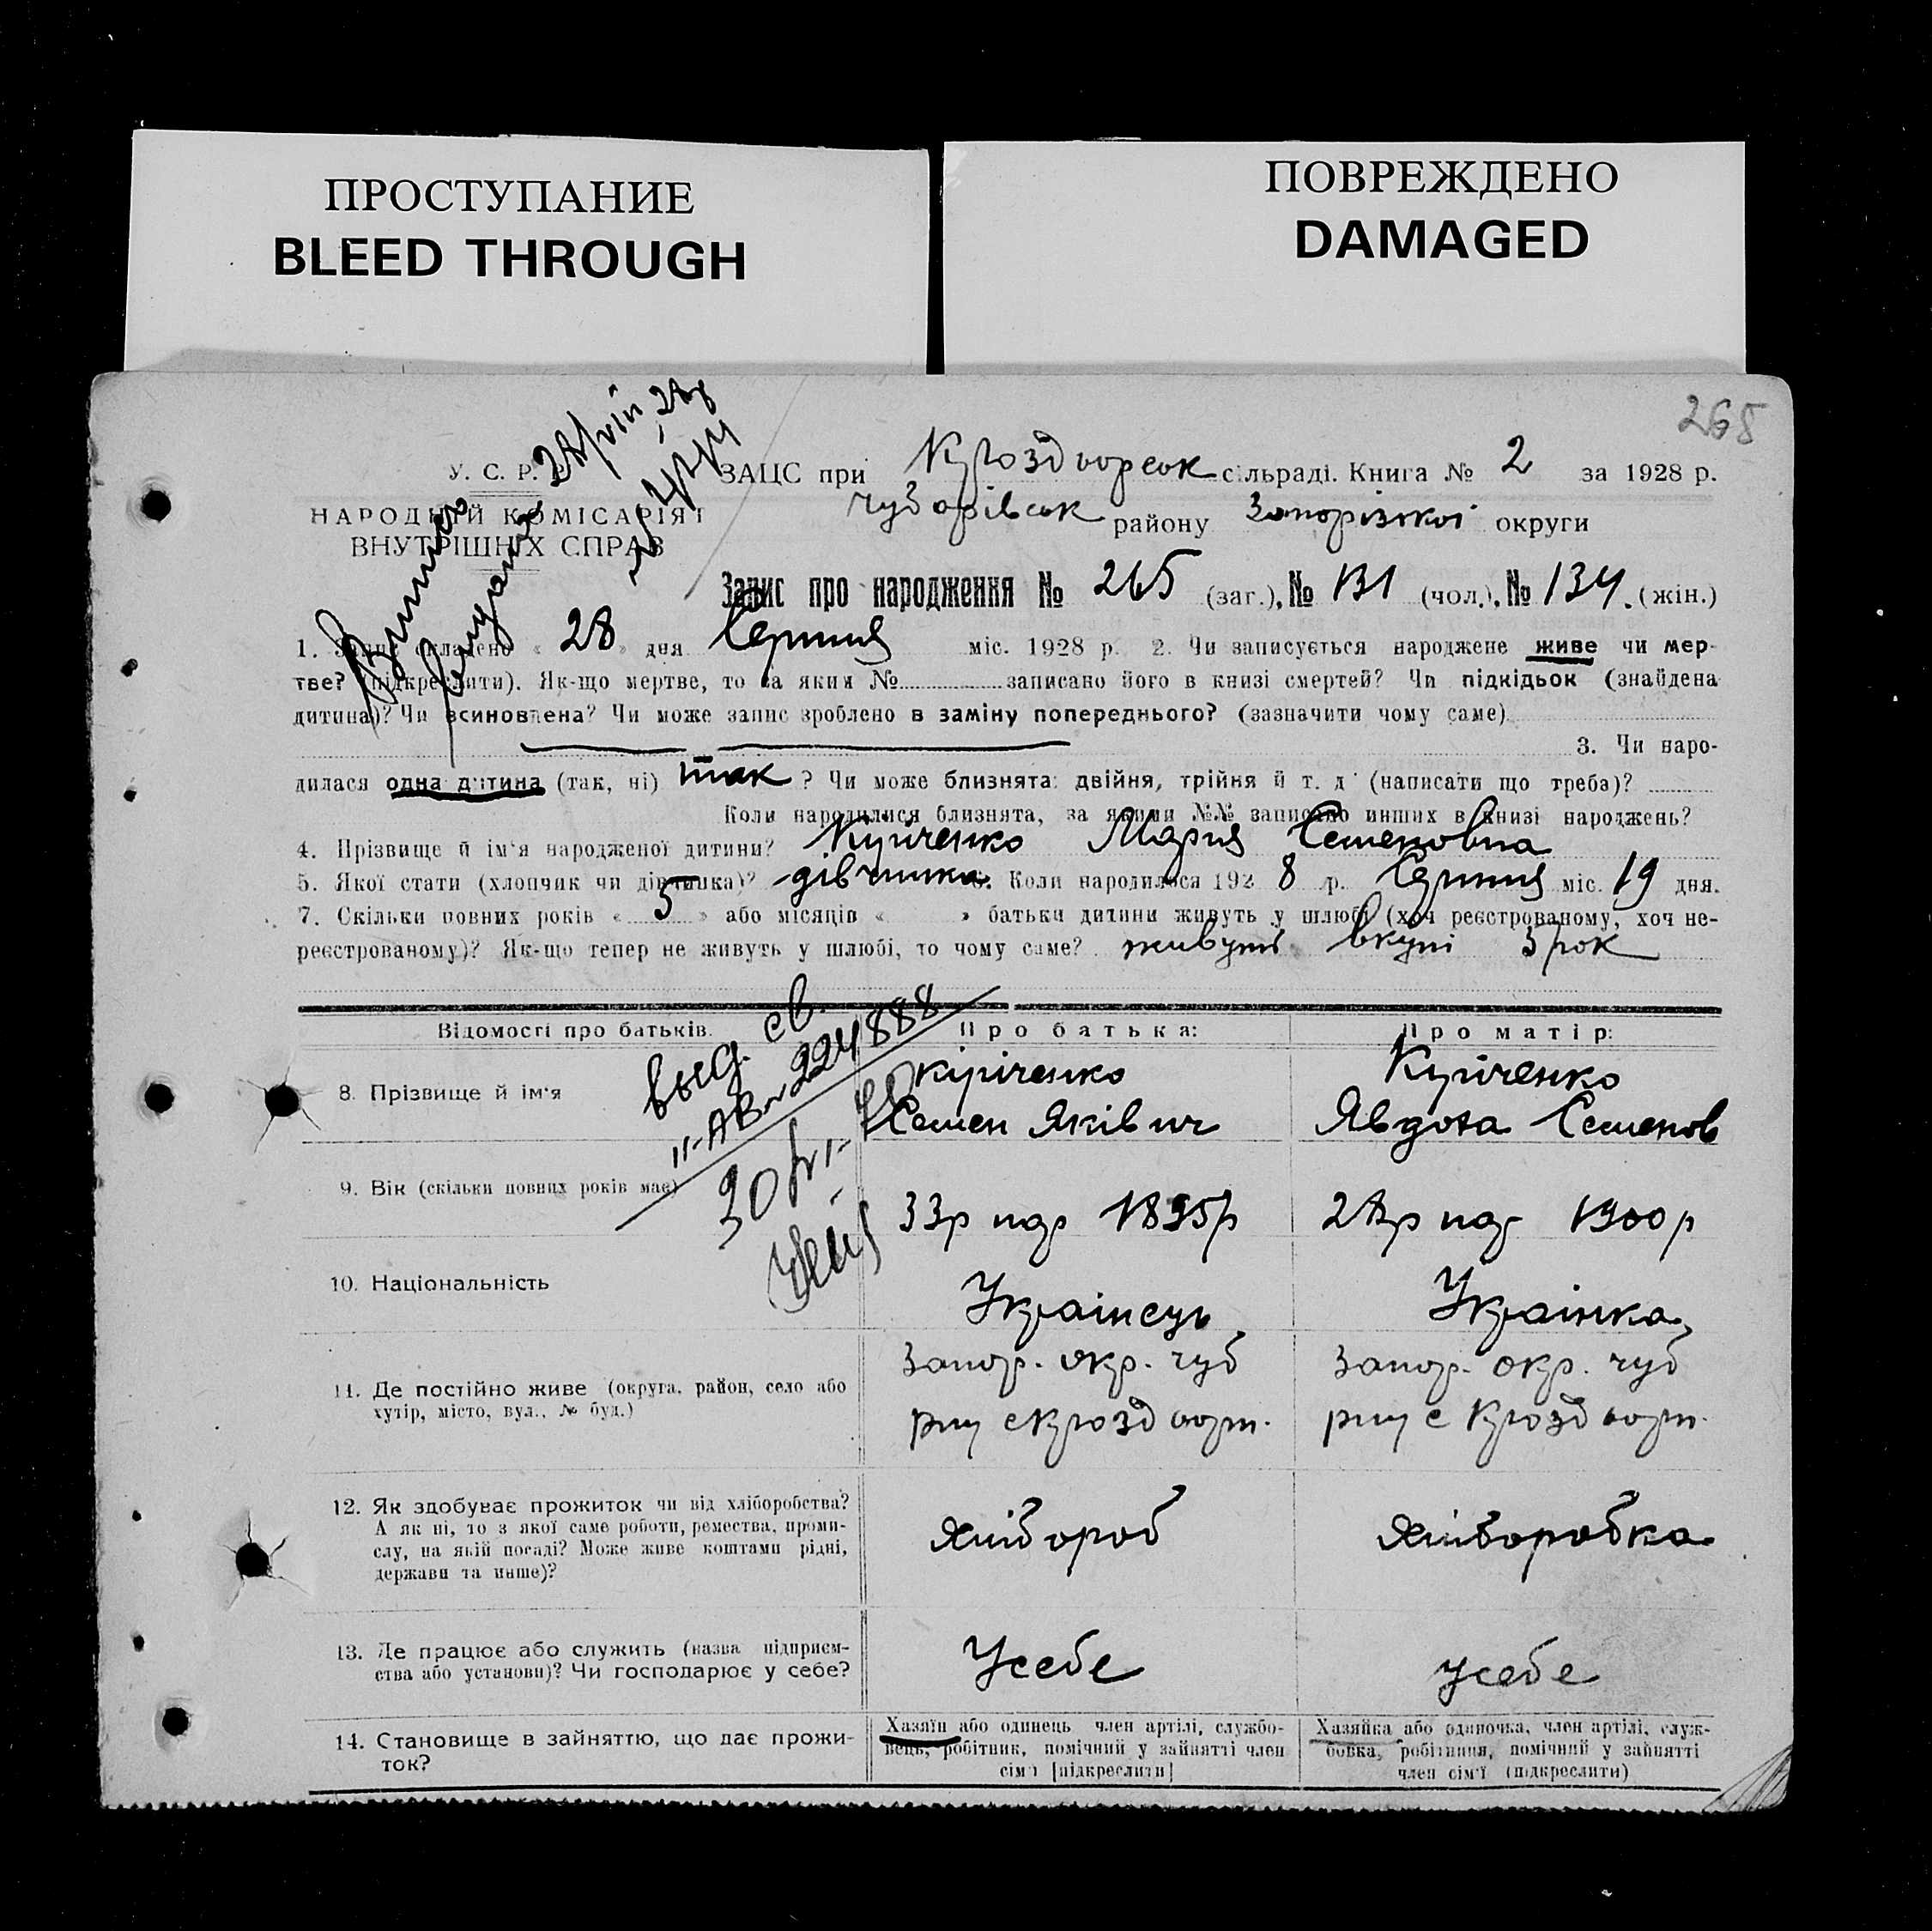 ПРОСТУПАНИЕ
BLEED THROUGH
ПОВРЕЖДЕНО
DAMAGED
265
У. С. Р. Р.
НАРОДНІЙ КОМІСАРІЯТ
ВНУТРІШНІХ СПРАВ
ЗАЦС при сільраді. Книга № 2 за 1928 р.
Чубарівськ району Запорізкої округи
Запис про народження № 265 (заг.), № 131 (чол.), № 134. (жін.)
1. Запис складено « 28 » дня Серпня міс. 1928 р. 2. Чи записується народжене живе чи мер-
тве? (підкреслити). Як-що мертве, то за яким № записано його в книзі смертей? Чи підкідьок (знайдена
дитина)? Чи всиновлена? Чи може запис зроблено в заміну попереднього? (зазначити чому саме)
3. Чи наро-
дилася одна дитина (так, ні) так ? Чи може близнята: двійня, трійня й т. д. (написати що треба)?
Коли народилися близнята, за якими №№ записано инших в книзі народжень?
4. Прізвище й ім'я народженої дитини? Кіріченко Мария Семеновна
5. Якої стати (хлопчик чи дівчинка)? дівчинка 6. Коли народилося 192 8 р. Серпня міс. 19 дня.
7. Скільки повних років « 5 » або місяців « » батьки дитини живуть у шлюбі (хоч реєстрованому, хоч не-
реєстрованому)? Як-що тепер не живуть у шлюбі, то чому саме? живуть вкупі 5 рок
выд. св.
II-АВ № 224888
Відомості про батьків. Про батька: Про матір:
8. Прізвище й ім'я Кіріченко Семен Яківич Кіріченко Явдоха Семенов
9. Вік (скільки повних років має) 33р нар 1895р 28р нар 1900р
10. Національність Украінець Украінка
11. Де постійно живе (округа, район, село або
хутір, місто, вул., № буд.)
Запор. окр. Чуб Запор. окр. Чуб
12. Як здобуває прожиток чи від хліборобства?
А як ні, то з якої саме роботи, ремества, проми-
слу, на якій посаді? Може живе коштами рідні,
держави та инше)?
Хлібороб Хліборобка
13. Де працює або служить (назва підприєм-
ства або установи)? Чи господарює у себе?
Усебе усебе
14. Становище в зайняттю, що дає прожи-
ток?
Хазяїн або одинець член артілі, службо-
вець, робітник, помічний у зайнятті член
сім'ї [підкреслити]
Хазяйка або одиночка, член артілі, служ-
бовка, робітниця, помічний у зайнятті
член сім'ї (підкреслити)